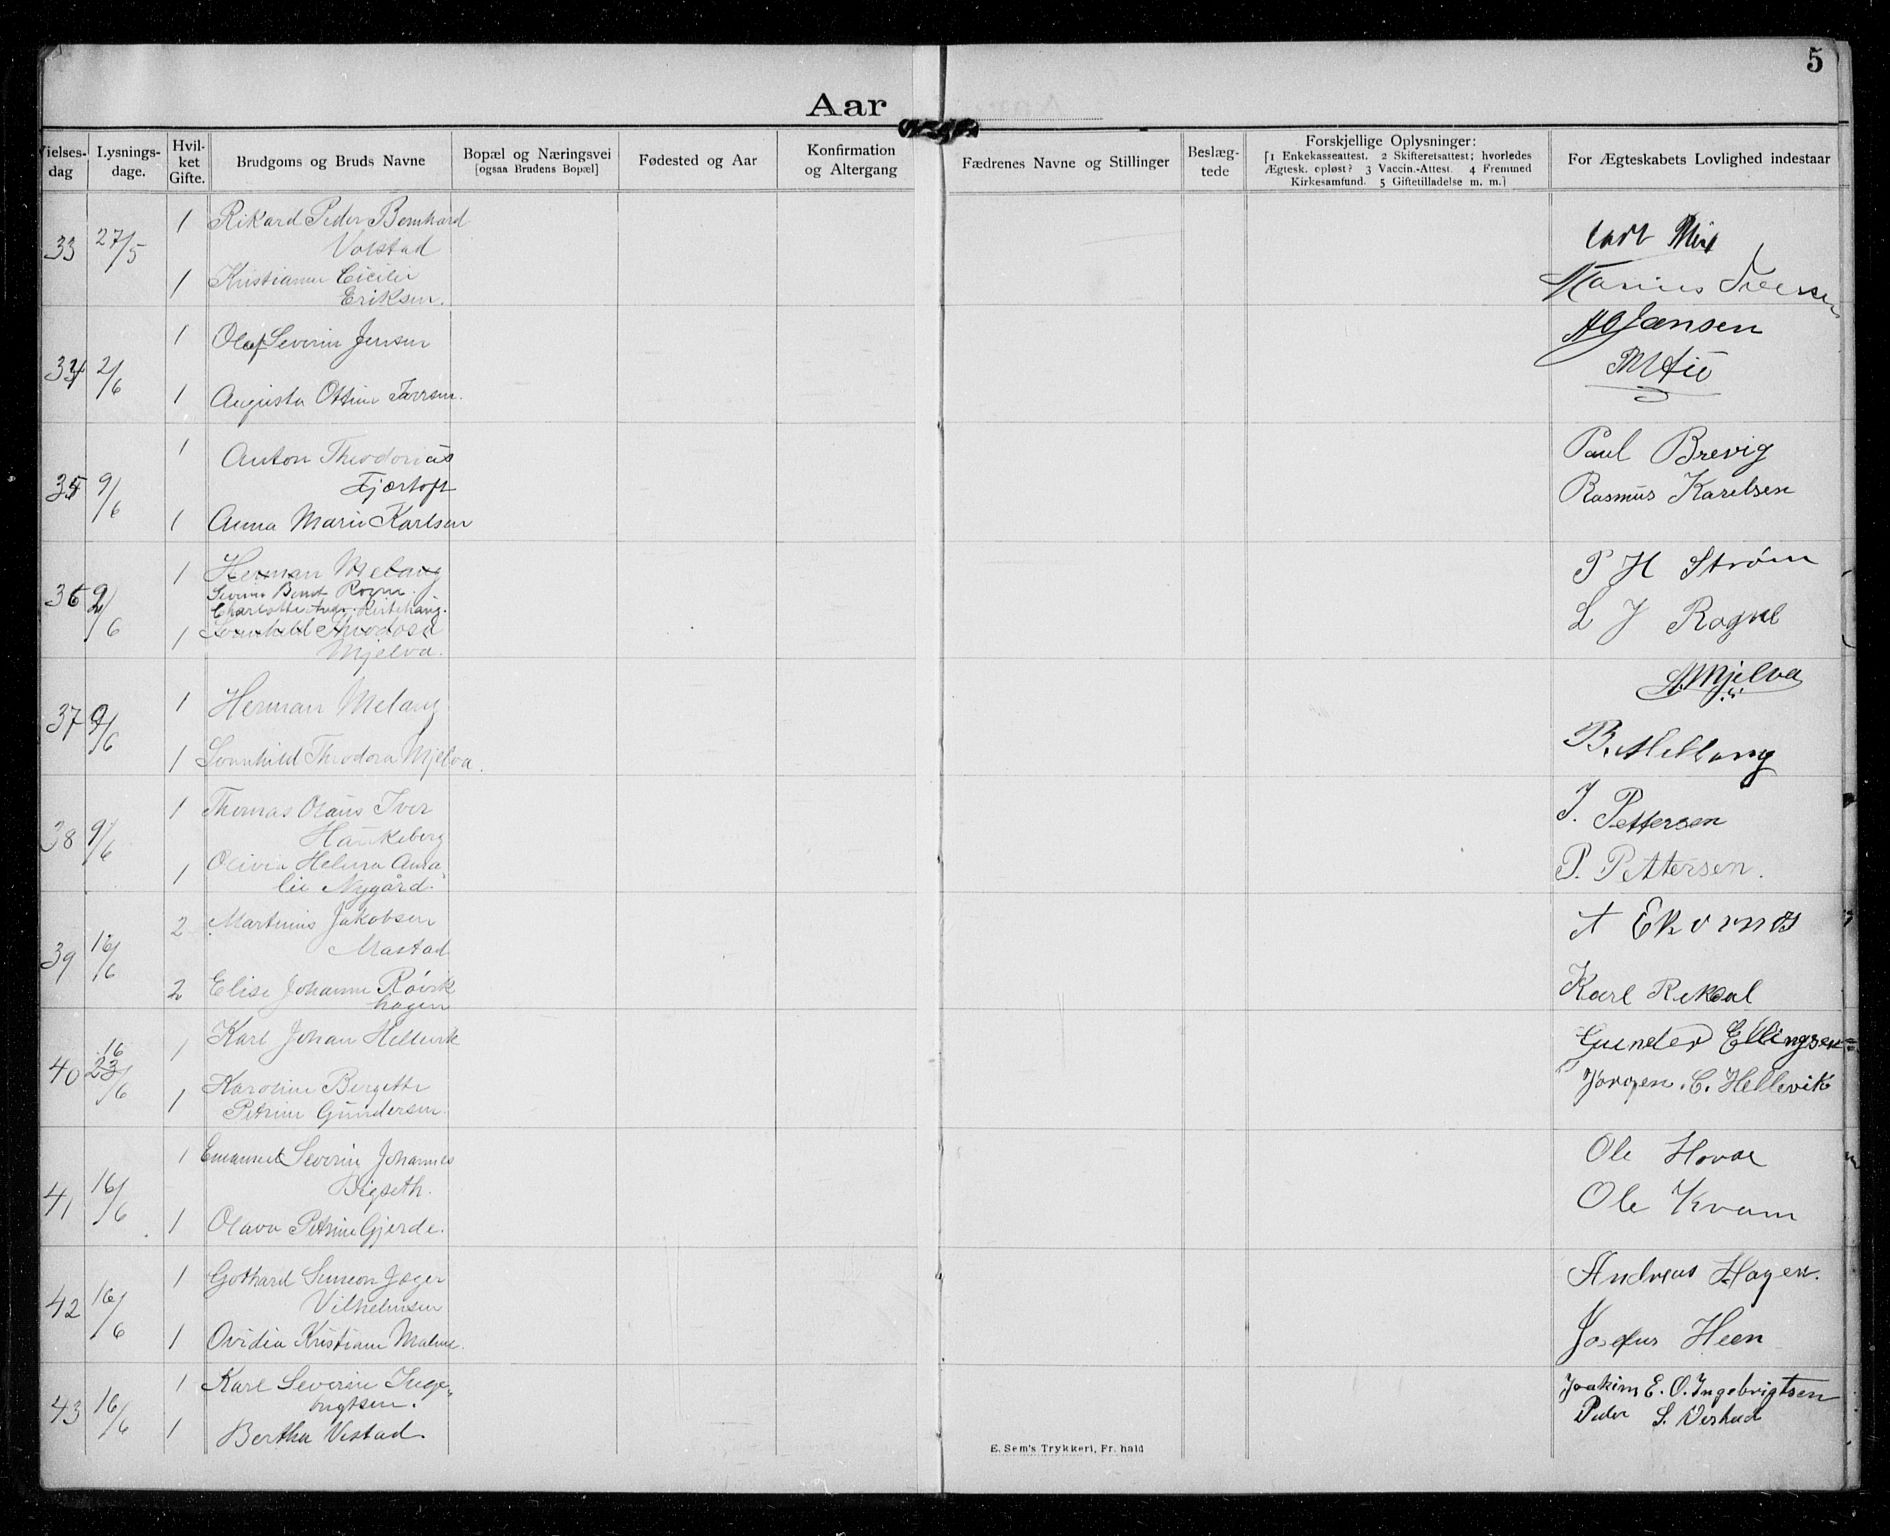 5
Aar
Vielsesdag
Lysningsdage.
Hvilket Gifte.
Brudgoms og Bruds Navne
Bopæl og Næringsvei [ogsaa Brudens Bopæl]
Fødested og Aar
Konfirmation og Altergang
Fædrenes Navne og Stillinger
Beslægtede
Forskjellige Oplysninger: [1 Enkekasseattest. 2 Skifteretsattest; hvorledes Ægtesk. opløst? 3 Vaccin.-Attest. 4 Fremmed Kirkesamfund. 5 Giftetilladelse m. m.]
For Ægteskabets Lovlighed indestaar
33 27/5 1 Rikard Peder Bernhard
Volstad
1 Kristianna Cicilie
Eriksen.
Marius
34 2/6 1 Olaf Severin Jensen
AO Jansen
1 Augusta Ottine Iversen.
35 9/6 1 Anton Theodorius
Fjørtoft
1 Anna Marie Karlsen
Paul Brevig
Rasmus Karelsen
36 9/6 1 Herman Melang
Severin Bernt Rogne.
Charlotte Andr.
1 Svanhild Theodora
Mjelva.
P H Strøm
L J Rogne
37 9/6 1 Herman Melang
1 Svanhild Theodora Mjelva.
A. Mjelva
B. Mellang
38 9/6 1 Thomas Olaus Iver
Haukeberg
1 Olivia Helena Ama
lie Nygård.
I. Pettersen
P. Pettersen.
39 16/6 2 Martinus Jakobsen
Mastad
2 Elise Johanne Røvik
hagen
A Ekornes
Karl Rekdal
40 16 23/6 1 Karl Johan Hellevik
1 Karoline Bergitte
Petrine Gundersen.
Gunder Ellingsen
Jørgen. C. Hellevik
41 16/6 1 Emanuel Severin Johannes
Digseth.
1 Olava Petrine Gjerde.
Ole Hovde
Ole Kvam
42 16/6 1 Gothard Simeon Jæger
Vilhelmsen
1 Ovidia Kristiane Malme.
Andreas Hagen.
Josefus Heen
43 16/6 1 Karl Severin Inge-
brigtsen.
1 Bertha Vestad.
Joakim E. O. Ingebrigtsen
Peder S. Vestad
E. Sem's Trykkeri, Fr.hald